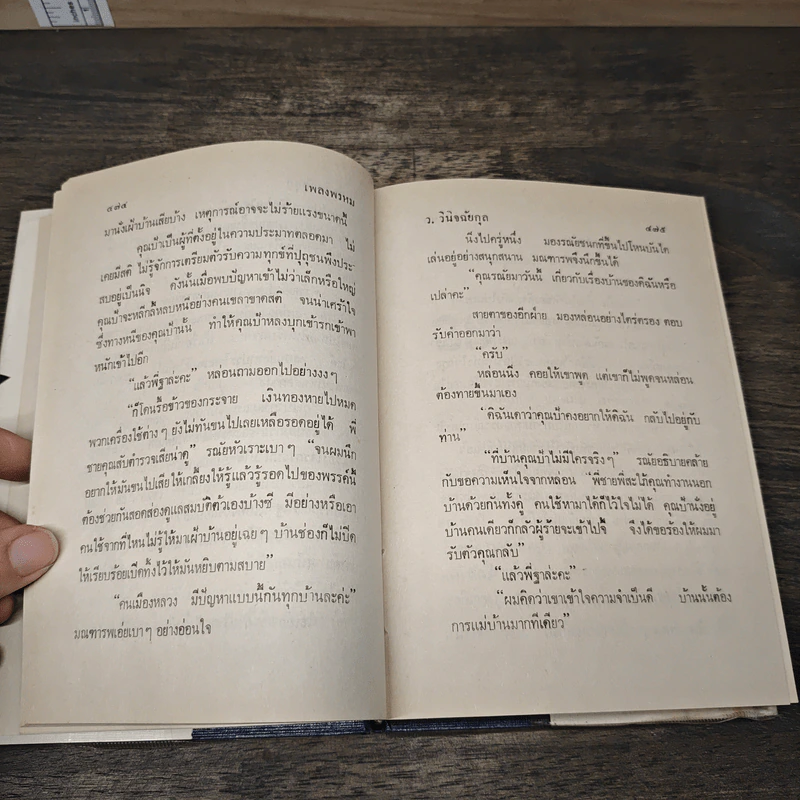 inches
๔๗๔
เพลงพรหม
มานั่งเฝ้าบ้านเสียบ้าง เหตุการณ์อาจจะไม่ร้ายแรงขนาดนี้
คุณป้าเป็นผู้ที่ตั้งอยู่ในความประมาทตลอดมา ไม่
เคยมีสติ ไม่รู้จักการเตรียมตัวรับความทุกข์ที่ปุถุชนพึงประ-
สบอยู่เป็นนิจ ดังนั้นเมื่อพบปัญหาเข้าไม่ว่าเล็กหรือใหญ่
คุณป้าจะหลีกลี้หลบหนีอย่างคนเขลาขาดสติ จนน่าเศร้าใจ
ซึ่งทางหนีของคุณป้านั้น ทำให้คุณป้าหลงบุกเข้ารกเข้าพง
หนักเข้าไปอีก
“แล้วพี่ฐาล่ะคะ” หล่อนถามออกไปอย่างงงๆ
“ก็โดนรื้อข้าวของกระจาย เงินทองหายไปหมด
พวกเครื่องใช้ต่างๆ ยังไม่ทันขนไปเลยเหลือรอดอยู่ได้ พี่
ชายคุณสับตำรวจเสียน่าดู” รณัยหัวเราะเบาๆ “จนผมนึก
อยากให้มันขนไปเสียให้เกลี้ยงให้รู้แล้วรู้รอดไปของพรรค์นี้
ต้องช่วยกันสอดส่องดูแลสมบัติตัวเองบ้างซี มีอย่างหรือเอา
คนใช้จากที่ไหนไม่รู้ให้มาเฝ้าบ้านอยู่เฉยๆ บ้านช่องก็ไม่ปิด
ให้เรียบร้อยเปิดทิ้งไว้ให้มันหยิบตามสบาย”
“คนเมืองหลวง มีปัญหาแบบนี้กันทุกบ้านละค่ะ”
มณฑารพเอ่ยเบาๆ อย่างอ่อนใจ
ว. วินิจฉัยกุล
๔๗๕
นิ่งไปครู่หนึ่ง มองรณัยชนกที่ขึ้นไปโหนบันได
เล่นอยู่อย่างสนุกสนาน มณฑารพจึงนึกขึ้นได้
“คุณรณัยมาวันนี้ เกี่ยวกับเรื่องบ้านของดิฉันหรือ
เปล่าคะ”
สายตาของอีกฝ่าย มองหล่อนอย่างใคร่ครอง ตอบ
รับคำออกมาว่า
“ครับ”
หล่อนนิ่ง คอยให้เขาพูด แต่เขาก็ไม่พูดจนหล่อน
ต้องทายขึ้นมาเอง
“ดิฉันเดาว่าคุณป้าคงอยากให้ดิฉัน กลับไปอยู่กับ
ท่าน”
“ที่บ้านคุณป้าไม่มีใครจริงๆ” รณัยอธิบายคล้าย
กับขอความเห็นใจจากหล่อน “พี่ชายพี่สะใภ้คุณทำงานนอก
บ้านด้วยกันทั้งคู่ คนใช้หามาได้ก็ไว้ใจไม่ได้ คุณป้านั่งอยู่
บ้านคนเดียวก็กลัวผู้ร้ายจะเข้าไปจี้ จึงได้ขอร้องให้ผมมา
รับตัวคุณกลับ”
“แล้วพี่ฐาล่ะคะ”
“ผมคิดว่าเขาเข้าใจความจำเป็นดี บ้านนั้นต้อง
การแม่บ้านมากทีเดียว”